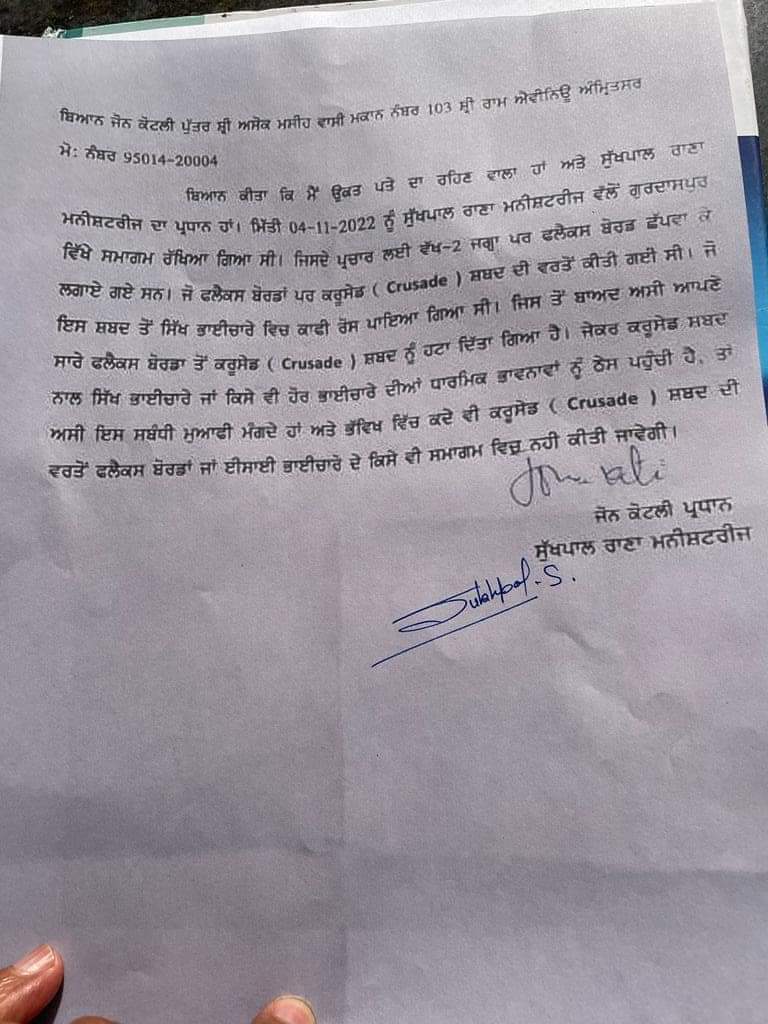 ਬਿਆਨ ਜੋਨ ਕੋਟਲੀ ਪੁੱਤਰ ਸ਼੍ਰੀ ਅਸੋਕ ਮਸੀਹ ਵਾਸੀ ਮਕਾਨ ਨੰਬਰ 103 ਸ਼੍ਰੀ ਰਾਮ ਐਵੀਨਿਊ ਅੰਮ੍ਰਿਤਸਰ
ਮੋ: ਨੰਬਰ 95014-20004
ਬਿਆਨ ਕੀਤਾ ਕਿ ਮੈਂ ਉਕਤ ਪਤੇ ਦਾ ਰਹਿਣ ਵਾਲਾ ਹਾਂ ਅਤੇ ਸੁੱਖਪਾਲ ਰਾਣਾ
ਮਨੀਸ਼ਟਰੀਜ ਦਾ ਪ੍ਰਧਾਨ ਹਾਂ। ਮਿੱਤੀ 04-11-2022 ਨੂੰ ਸੁੱਖਪਾਲ ਰਾਣਾ ਮਨੀਸ਼ਟਰੀਜ ਵੱਲੋਂ ਗੁਰਦਾਸਪੁਰ
ਵਿੱਖੇ ਸਮਾਗਮ ਰੱਖਿਆ ਗਿਆ ਸੀ। ਜਿਸਦੇ ਪ੍ਰਚਾਰ ਲਈ ਵੱਖ-2 ਜਗ੍ਹਾ ਪਰ ਫਲੈਕਸ ਬੋਰਡ ਛੱਪਵਾ ਕੇ
ਲਗਾਏ ਗਏ ਸਨ। ਜੋ ਫਲੈਕਸ ਬੋਰਡਾਂ ਪਰ ਕਰੂਸੇਡ ( Crusade ) ਸ਼ਬਦ ਦੀ ਵਰਤੋਂ ਕੀਤੀ ਗਈ ਸੀ। ਜੋ
ਇਸ ਸ਼ਬਦ ਤੋਂ ਸਿੱਖ ਭਾਈਚਾਰੇ ਵਿਚ ਕਾਫੀ ਰੋਸ ਪਾਇਆ ਗਿਆ ਸੀ। ਜਿਸ ਤੋਂ ਬਾਅਦ ਅਸੀ ਆਪਣੇ
ਸਾਰੇ ਫਲੈਕਸ ਬੋਰਡਾ ਤੋਂ ਕਰੂਸੇਡ ( Crusade ) ਸ਼ਬਦ ਨੂੰ ਹਟਾ ਦਿੱਤਾ ਗਿਆ ਹੈ। ਜੇਕਰ ਕਰੂਸੇਡ ਸ਼ਬਦ
ਨਾਲ ਸਿੱਖ ਭਾਈਚਾਰੇ ਜਾਂ ਕਿਸੇ ਵੀ ਹੋਰ ਭਾਈਚਾਰੇ ਦੀਆਂ ਧਾਰਮਿਕ ਭਾਵਨਾਵਾਂ ਨੂੰ ਠੇਸ ਪਹੁੰਚੀ ਹੈ, ਤਾਂ
ਅਸੀ ਇਸ ਸਬੰਧੀ ਮੁਆਫੀ ਮੰਗਦੇ ਹਾਂ ਅਤੇ ਭੱਵਿਖ ਵਿੱਚ ਕਦੇ ਵੀ ਕਰੂਸੇਡ ( Crusade ) ਸ਼ਬਦ ਦੀ
ਵਰਤੋਂ ਫਲੈਕਸ ਬੋਰਡਾਂ ਜਾਂ ਈਸਾਈ ਭਾਈਚਾਰੇ ਦੇ ਕਿਸੇ ਵੀ ਸਮਾਗਮ ਵਿਚ ਨਹੀ ਕੀਤੀ ਜਾਵੇਗੀ।
ਜੋਨ ਕੋਟਲੀ ਪ੍ਰਧਾਨ
ਸੁੱਖਪਾਲ ਰਾਣਾ ਮਨੀਸ਼ਟਰੀਜ
Sukhpal.S.